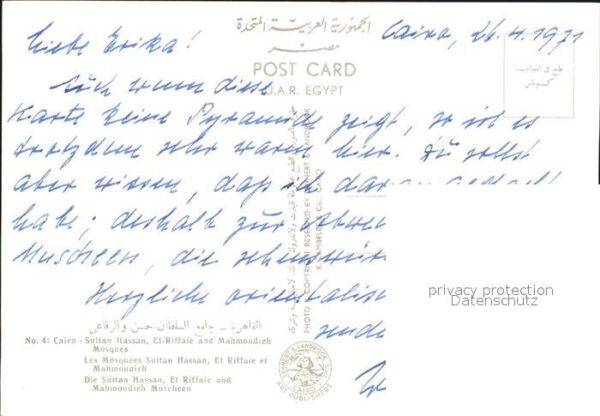 الجمهورية العربية المتحدة
مصر
POST CARD
U.A.R. EGYPT
Cairo, 26.4.1971
طبع في اسبانيا
Liebe Erika!
Auch wenn diese
Karte keine Pyramide zeigt, so ist es
trotzdem sehr warm hier. Du sollst
aber wissen, daß ich daran gedacht
habe; deshalb zur Abwe
Muscheen, die sehenswür
Herzliche orientalis
sende
privacy protection
Datenschutz
القاهرة – جامع السلطان حسن والرفاعي
No. 41 Cairo - Sultan Hassan, El-Riffaie and Mahmoudieh
Mosques
Les Mosquées Sultan Hassan, El Riffaie et
Mahmoudieh
Die Sultan Hassan, El Riffaie und
Mahmoudieh Moscheen
PHOTO & COPYRIGHT RESERVED BY LEHNERT & LANDROCK
K. LAMBELET & Co., CAIRO
LEHNERT & LANDROCK
CAIRO
ART PUBLISHERS